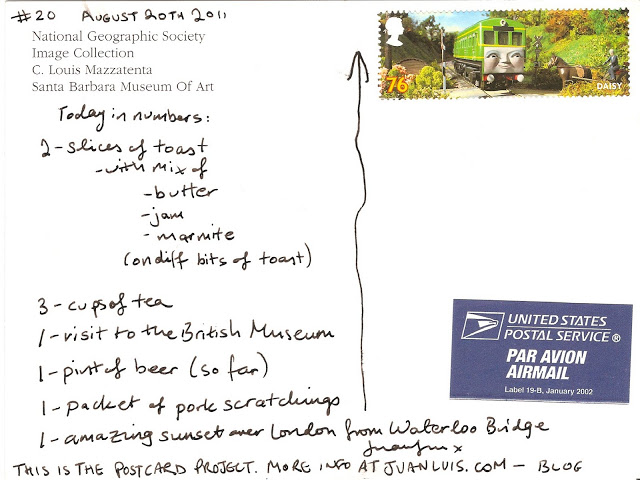 #20 AUGUST 20TH 2011
National Geographic Society
Image Collection
C. Louis Mazzatenta
Santa Barbara Museum Of Art
Today in numbers:
2 - slices of toast
- with mix of
- butter
- jam
- marmite
(on diff bits of toast)
3 - cups of tea
1 - visit to the British Museum
1 - pint of beer (so far)
1 - packet of pork scratchings
1 - amazing sunset over London from Waterloo Bridge
x
THIS IS THE POSTCARD PROJECT. MORE INFO AT JUANLUIS.COM - BLOG
76
DAISY
UNITED STATES
POSTAL SERVICE®
PAR AVION
AIRMAIL
Label 19-B, January 2002